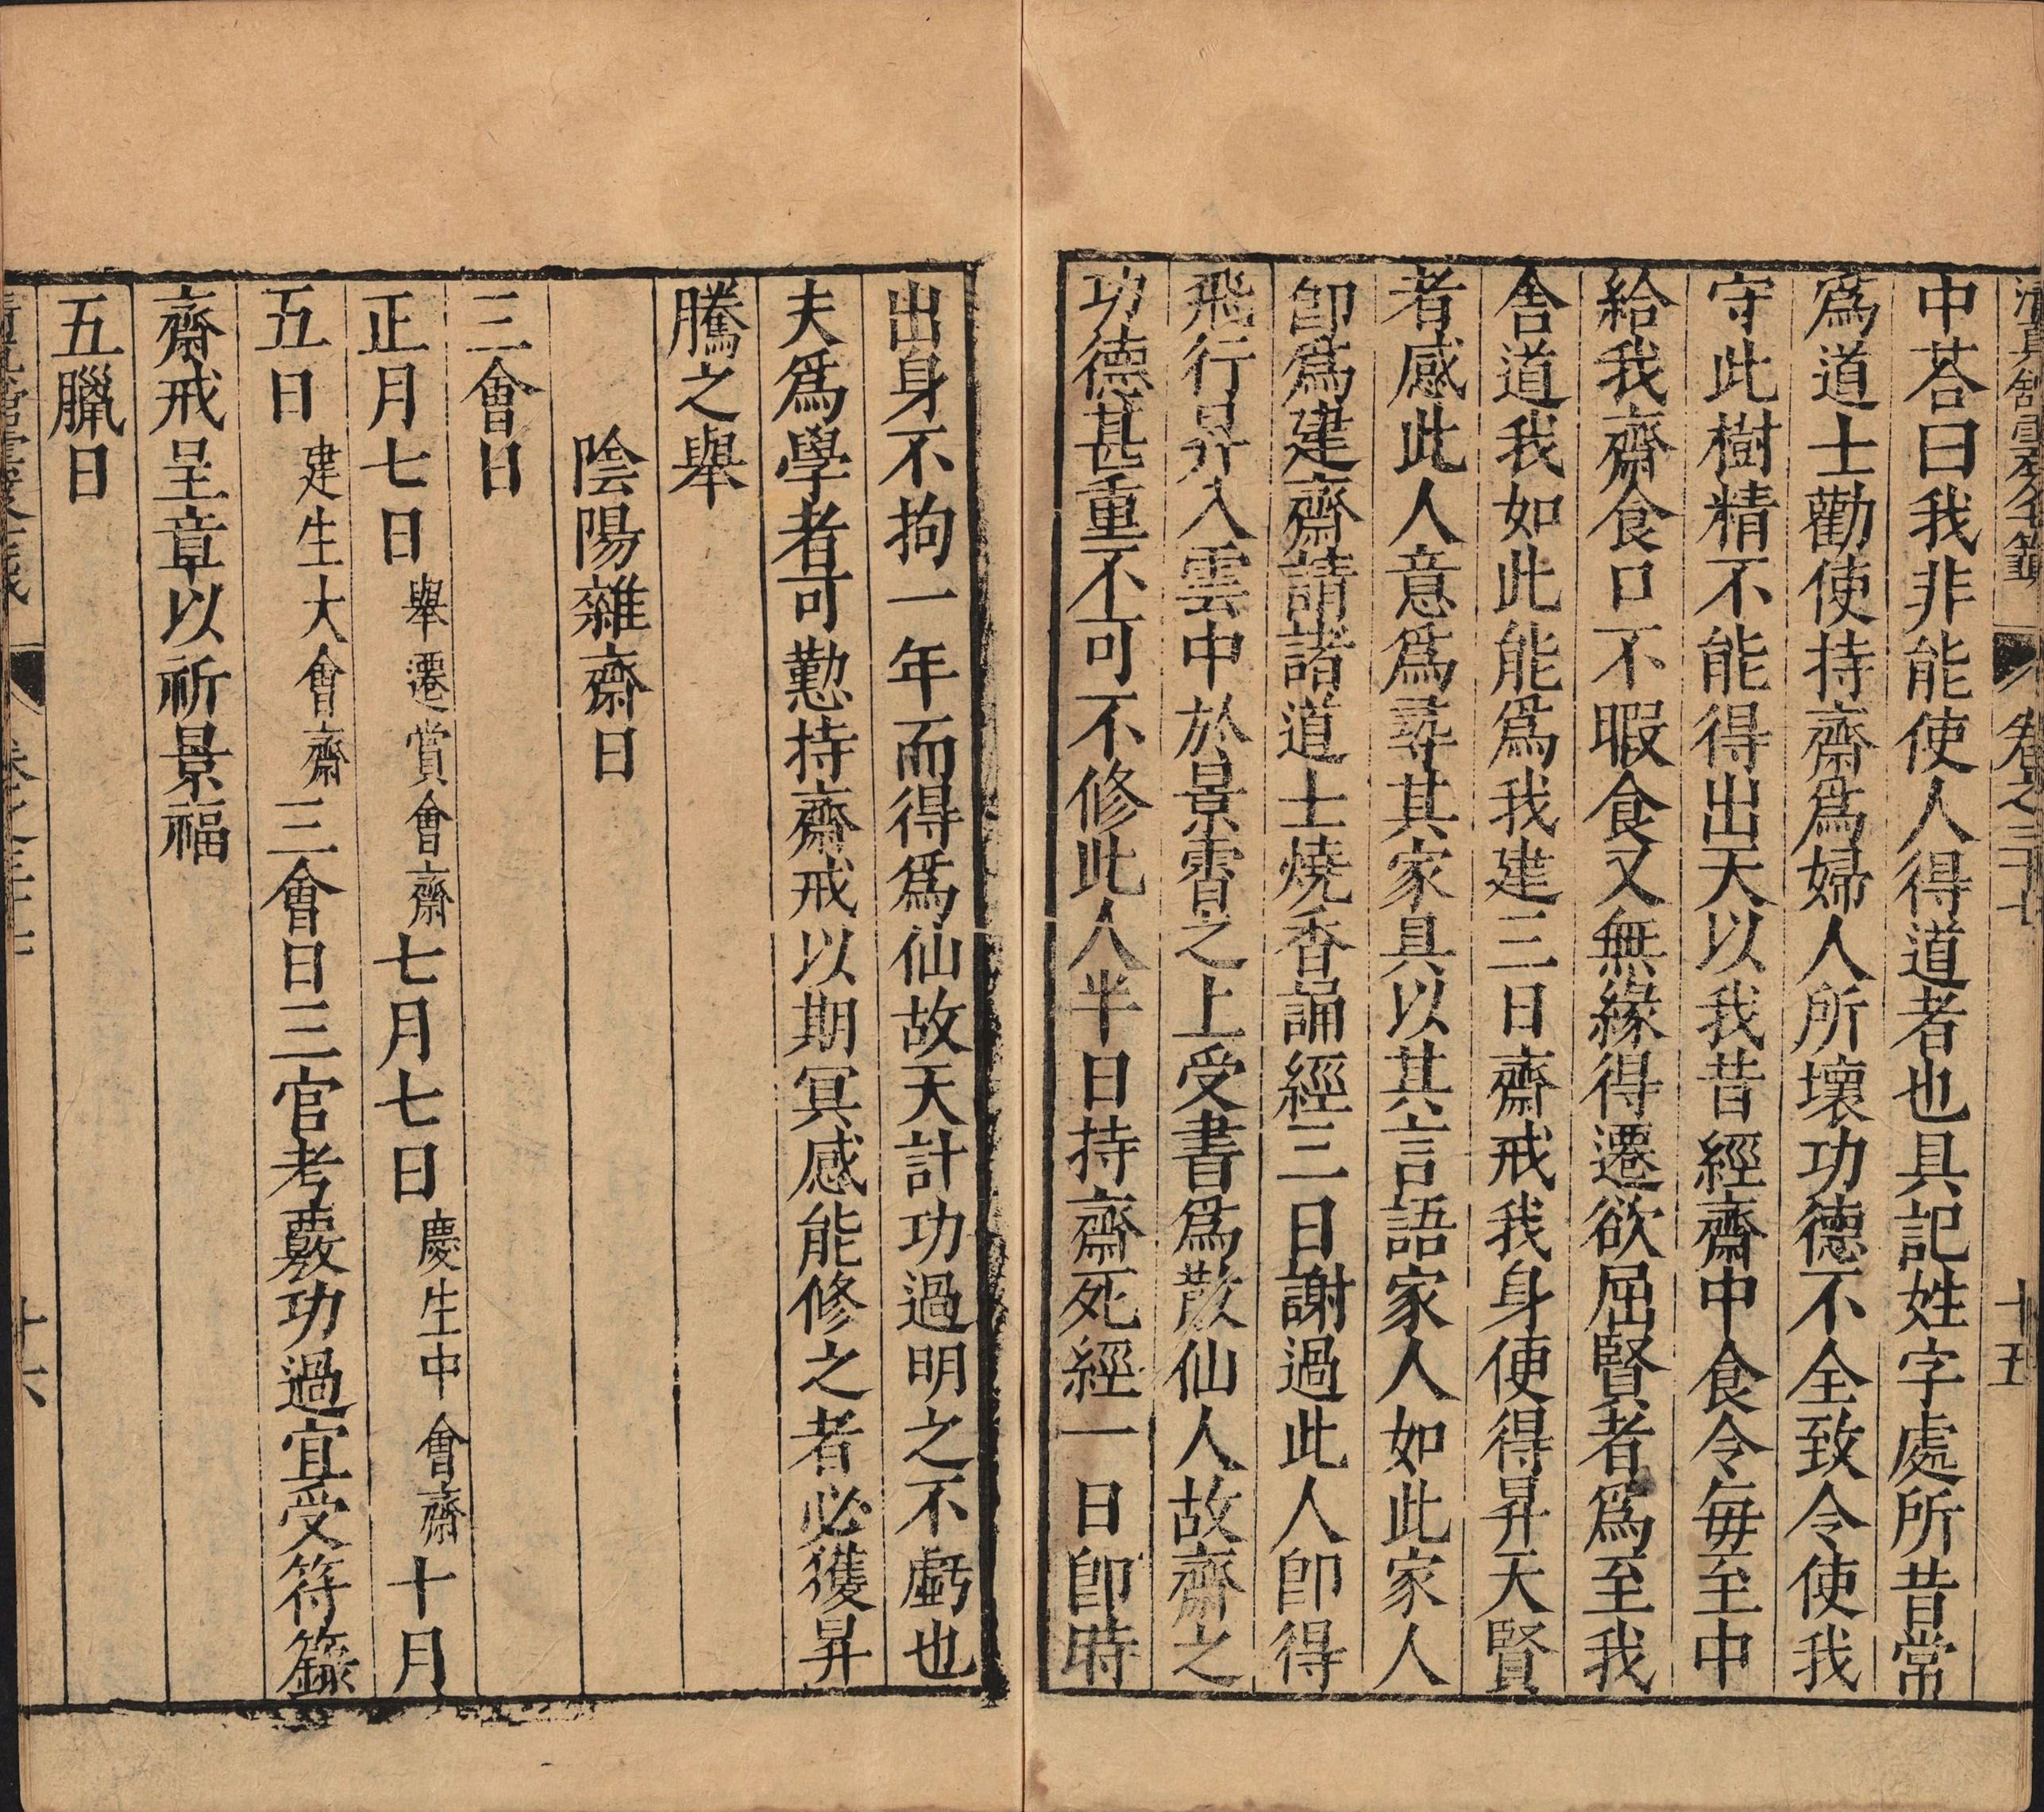 清真館雲笈七籤 卷之三十七 十五
中荅曰我非能使人得道者也具記姓字處所昔常
爲道士勸使持齋爲婦人所壞功德不全致令使我
守此樹精不能得出天以我昔經齋中食令每至中
給我齋食口不暇食又無緣得遷欲屈賢者爲至我
舍道我如此能爲我建三日齋戒我身使得昇天賢
者感此人意爲尋其家具以其言語家人如此家人
卽爲建齋請諸道士燒香誦經三日謝過此人卽得
飛行昇入雲中於景霄之上受書爲散仙人故齋之
功德甚重不可不修此人半日持齋死經一日卽時
出身不拘一年而得爲仙故天計功過明之不虧也
夫爲學者可懃持齋戒以期冥感能修之者必獲昇
騰之舉
陰陽雜齋日
三會日
正月七日舉遷賞會齋七月七日慶生中會齋十月
五日建生大會齋三會日三官考覈功過宜受符籙
齋戒呈章以祈景福
五臘日
十六